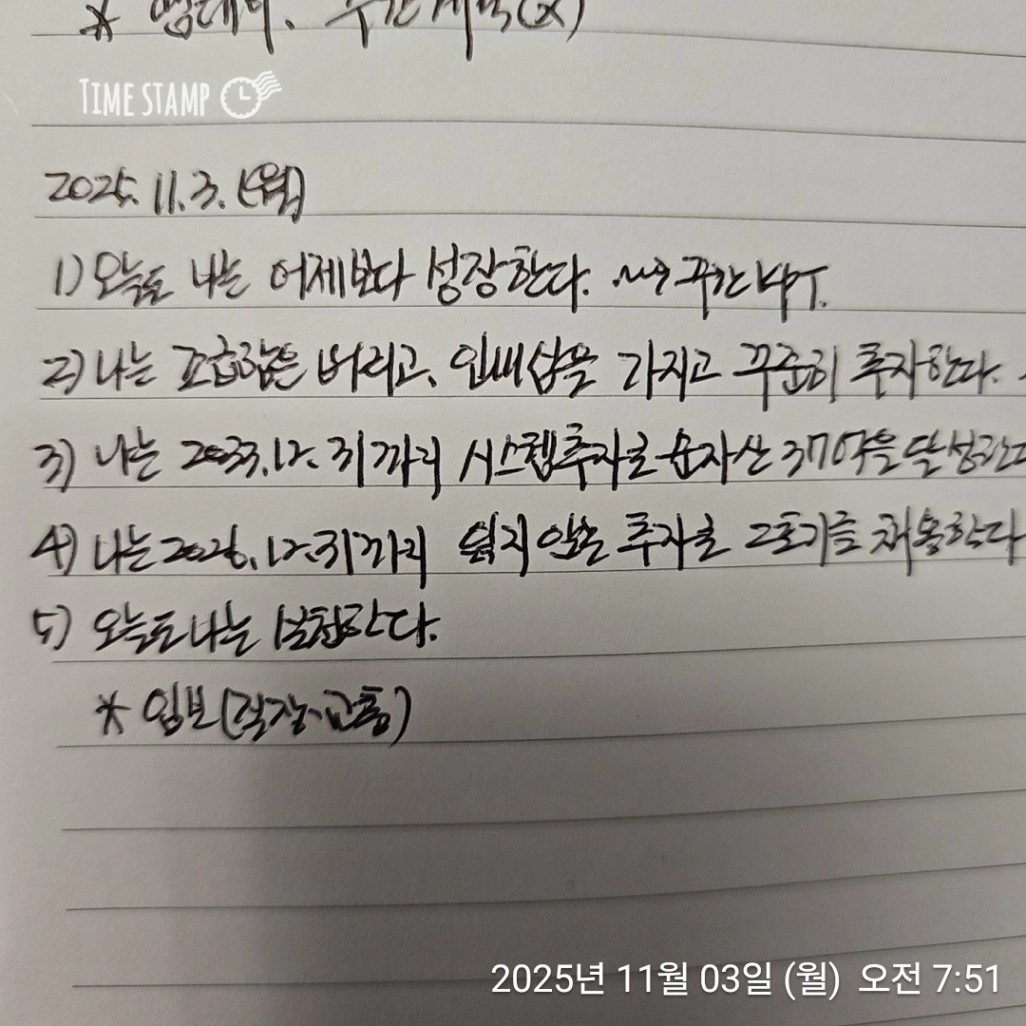 TIME STAMP
2025. 11. 3. (월)
1) 오늘도 나는 어제보다 성장한다. 주간 KPT.
2) 나는 조급함은 버리고, 인내심을 가지고 꾸준히 투자한다.
3) 나는 2033.12.31까지 시스템투자로 순자산 37억을 달성한다
4) 나는 2026.12.31까지 잃지 않은 투자로 2호기를 채용한다
5) 오늘도 나는 실천한다.
* 임보(직장-교통)
2025년 11월 03일 (월) 오전 7:51